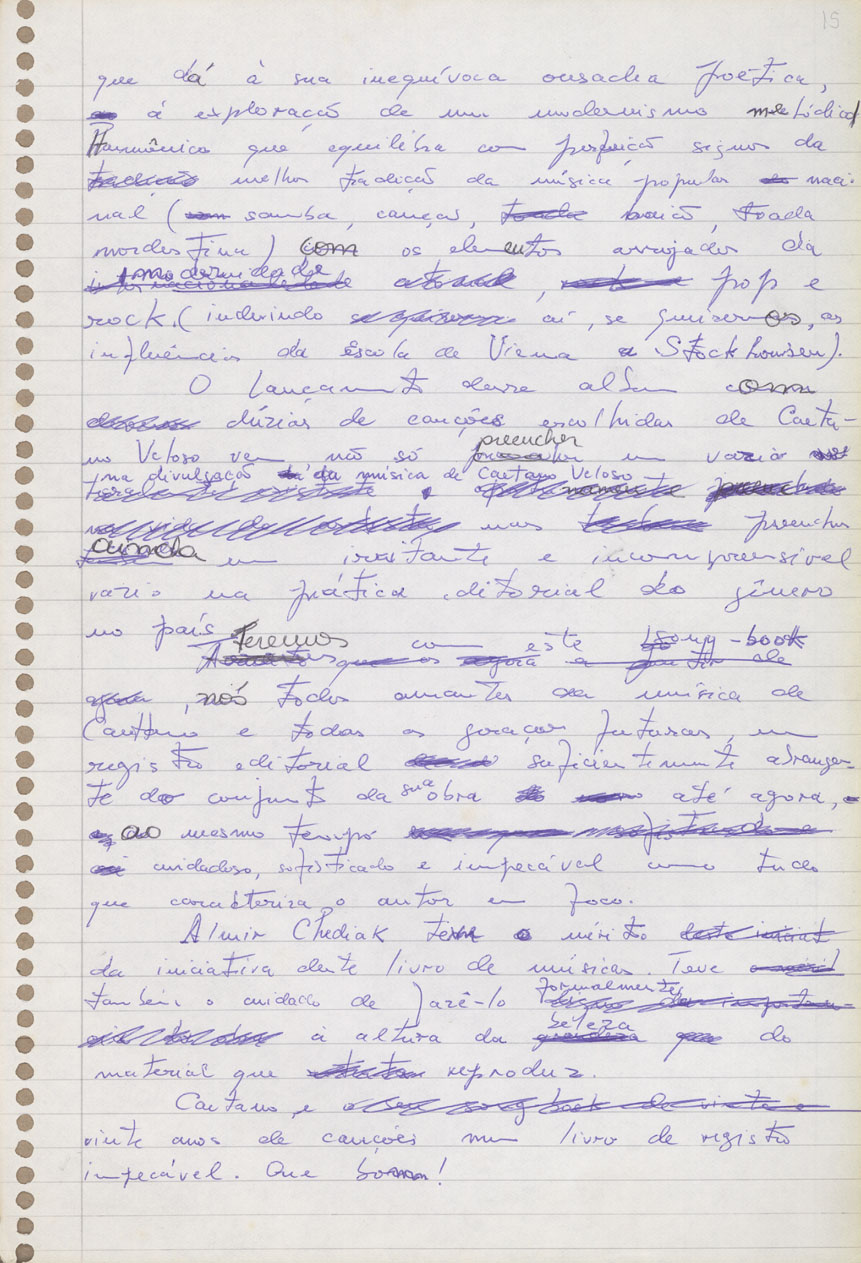 15
que dá à sua inequívoca ousadia poética,
à exploração de um modernismo melódico/
Harmônico que equilibra com perfeição signos da
melhor tradição da música popular naci-
nal (samba, canção, baião, toada
nordestina) com os elementos arrojados da
modernidade
, pop e
rock. (incluindo aí, se quiserem os, as
influências da escola de Viena a Stockhousen).
O lançamento desse album com
dúzias de canções escolhidas de Caeta-
no Veloso vem não só preencher um vazio
na divulgação da música de Caetano Veloso
mas preencher
ainda um irritante e incompreensível
vazio na prática editorial do gênero
no país.
Teremos com este song-book
, nós todos amantes da música de
Caetano e todas as gerações futuras, um
registro editorial suficientemente abrangen-
te do conjunto da sua obra até agora,
ao mesmo tempo
cuidadoso, sofisticado e impecável como tudo
que caracteriza o autor em foco.
Almir Chediak tem o mérito
da iniciativa deste livro de músicas. Teve
também o cuidado de fazê-lo formalmente
à altura da beleza do
material que reproduz.
Caetano, e
vinte anos de canções num livro de registro
impecável. Que bom!